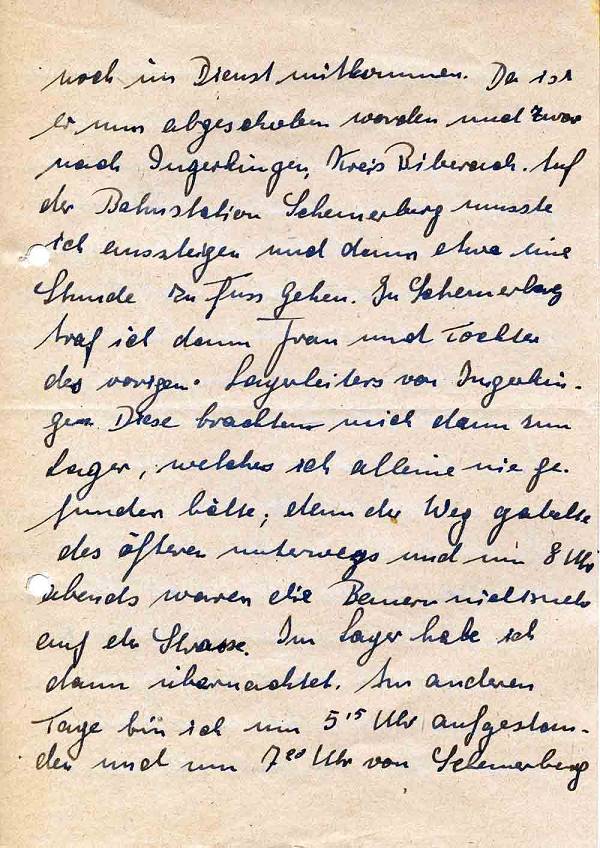 noch im Dienst mitkommen. Da ist
er nun abgeschoben worden und zwar
nach Ingerkingen, Kreis Biberach. Auf
der Bahnstation Schemerberg musste
ich aussteigen und dann etwa eine
Stunde zu Fuss gehen. In Schemerberg
traf ich dann Frau und Tochter
des vorigen Lagerleiters von Ingerkin-
gen. Diese brachten mich dann zum
Lager, welches ich alleine nie ge-
funden hätte, denn der Weg gabelte
des öfteren unterwegs und um 8 Uhr
abends waren die Bauern nicht mehr
auf der Strasse. Im Lager habe ich
dann übernachtet. Am anderen
Tage bin ich um 5¹⁵ Uhr aufgestan-
den und um 7²⁰ Uhr von Schemerberg